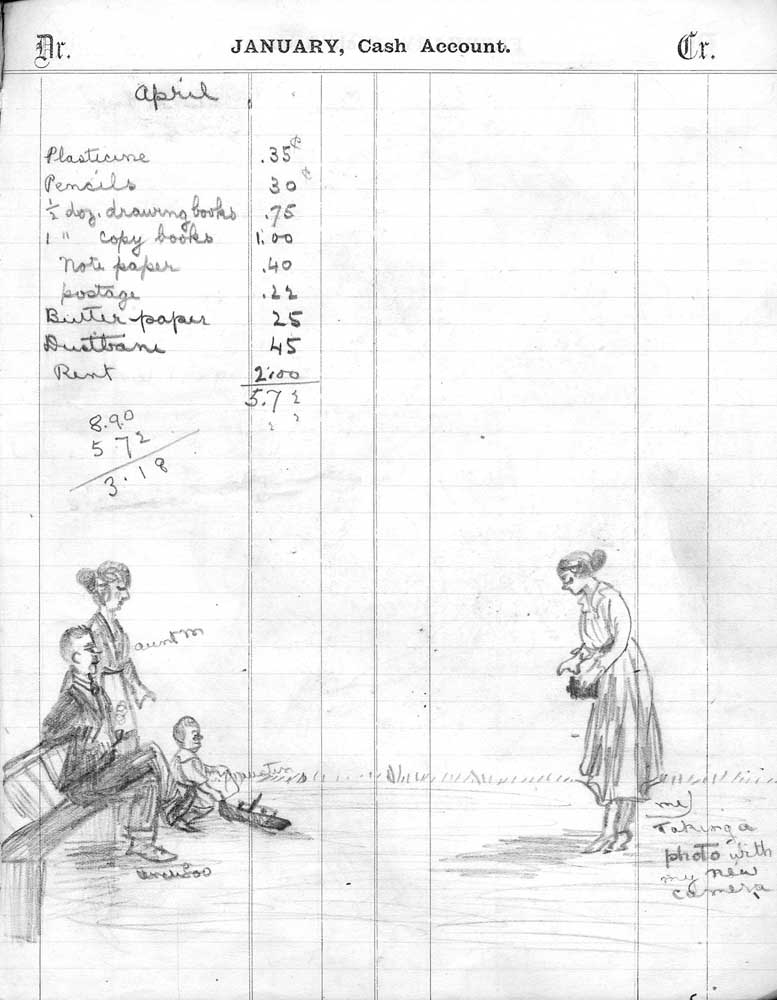 Dr. JANUARY, Cash Account. Cr.
April
Plasticine .35¢
Pencils 30¢
½ doz. drawing books .75
1 " copy books 1.00
Note paper .40
postage .22
Butter paper 25
Dustbane 45
Rent 2.00
5.72
8.90
5 72
3.18
aunt M
me
Taking a
photo with
my new
camera